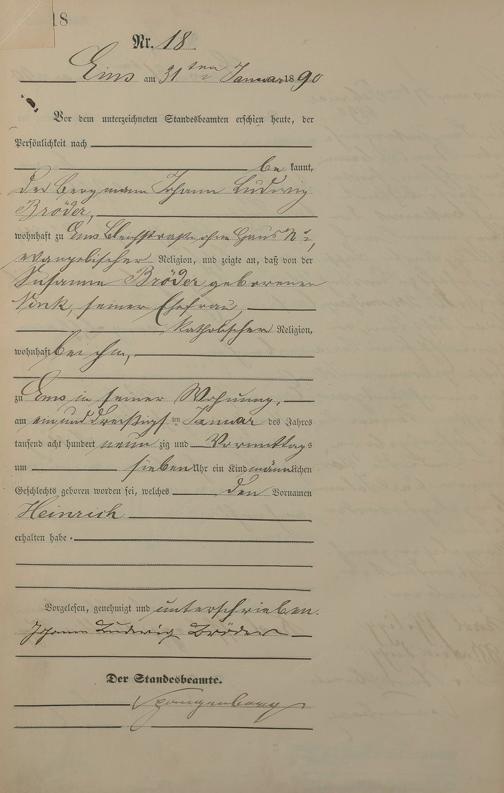 18
Nr. 18
Ems am 31ten Januar 1890
Vor dem unterzeichneten Standesbeamten erschien heute, der
Persönlichkeit nach
be kannt,
der Bergmann Johann Ludwig
Bröder,
wohnhaft zu Ems Bleichstraße ohne Haus No,
evangelischer Religion, und zeigte an, daß von der
Susanna Bröder geborenen
seiner Ehefrau,
katholischer Religion,
wohnhaft bei ihm,
zu Ems in seiner Wohnung,
am ein und dreißigst en Januar des Jahres
tausend acht hundert neun zig und Vormittags
um sieben Uhr ein Kind männlichen
Geschlechts geboren worden sei, welches den Vornamen
Heinrich
erhalten habe.
Vorgelesen, genehmigt und unterschrieben.
Johann Ludwig Bröder
Der Standesbeamte.
Spangenberg